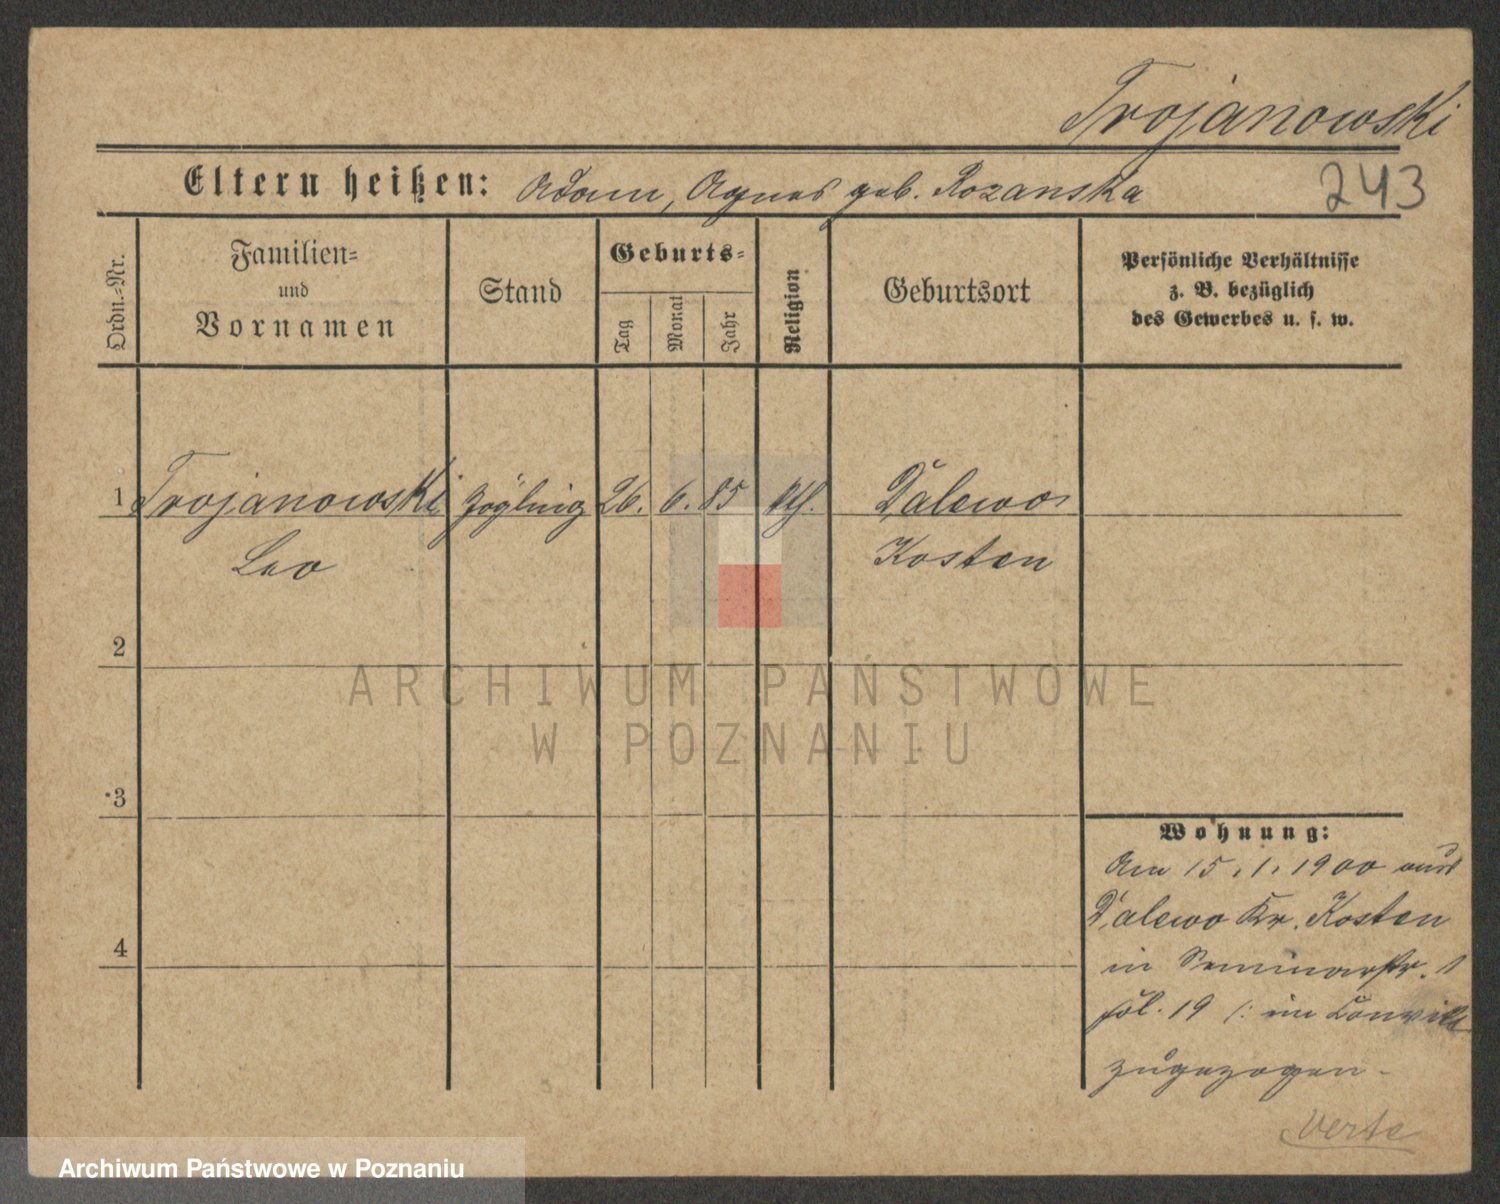 Trojanowski
Eltern heißen: Adam, Agnes geb. Rozanska
243
Ordn.-Nr.
Familien-
und
Vornamen
Stand
Geburts-
Tag
Monat
Jahr
Religion
Geburtsort
Persönliche Verhältnisse
z. B. bezüglich
des Gewerbes u. s. w.
1 Trojanowski Zögling 26. 6. 85 kth. Dalewo
Leo Kosten
2
3
4
Wohnung:
Am 15.1.1900 aus
Dalewo Kr. Kosten
in Seminarstr. 1
fol. 19 /: im Convikt
zugezogen.
Verte
ARCHIWUM PAŃSTWOWE
W POZNANIU
Archiwum Państwowe w Poznaniu